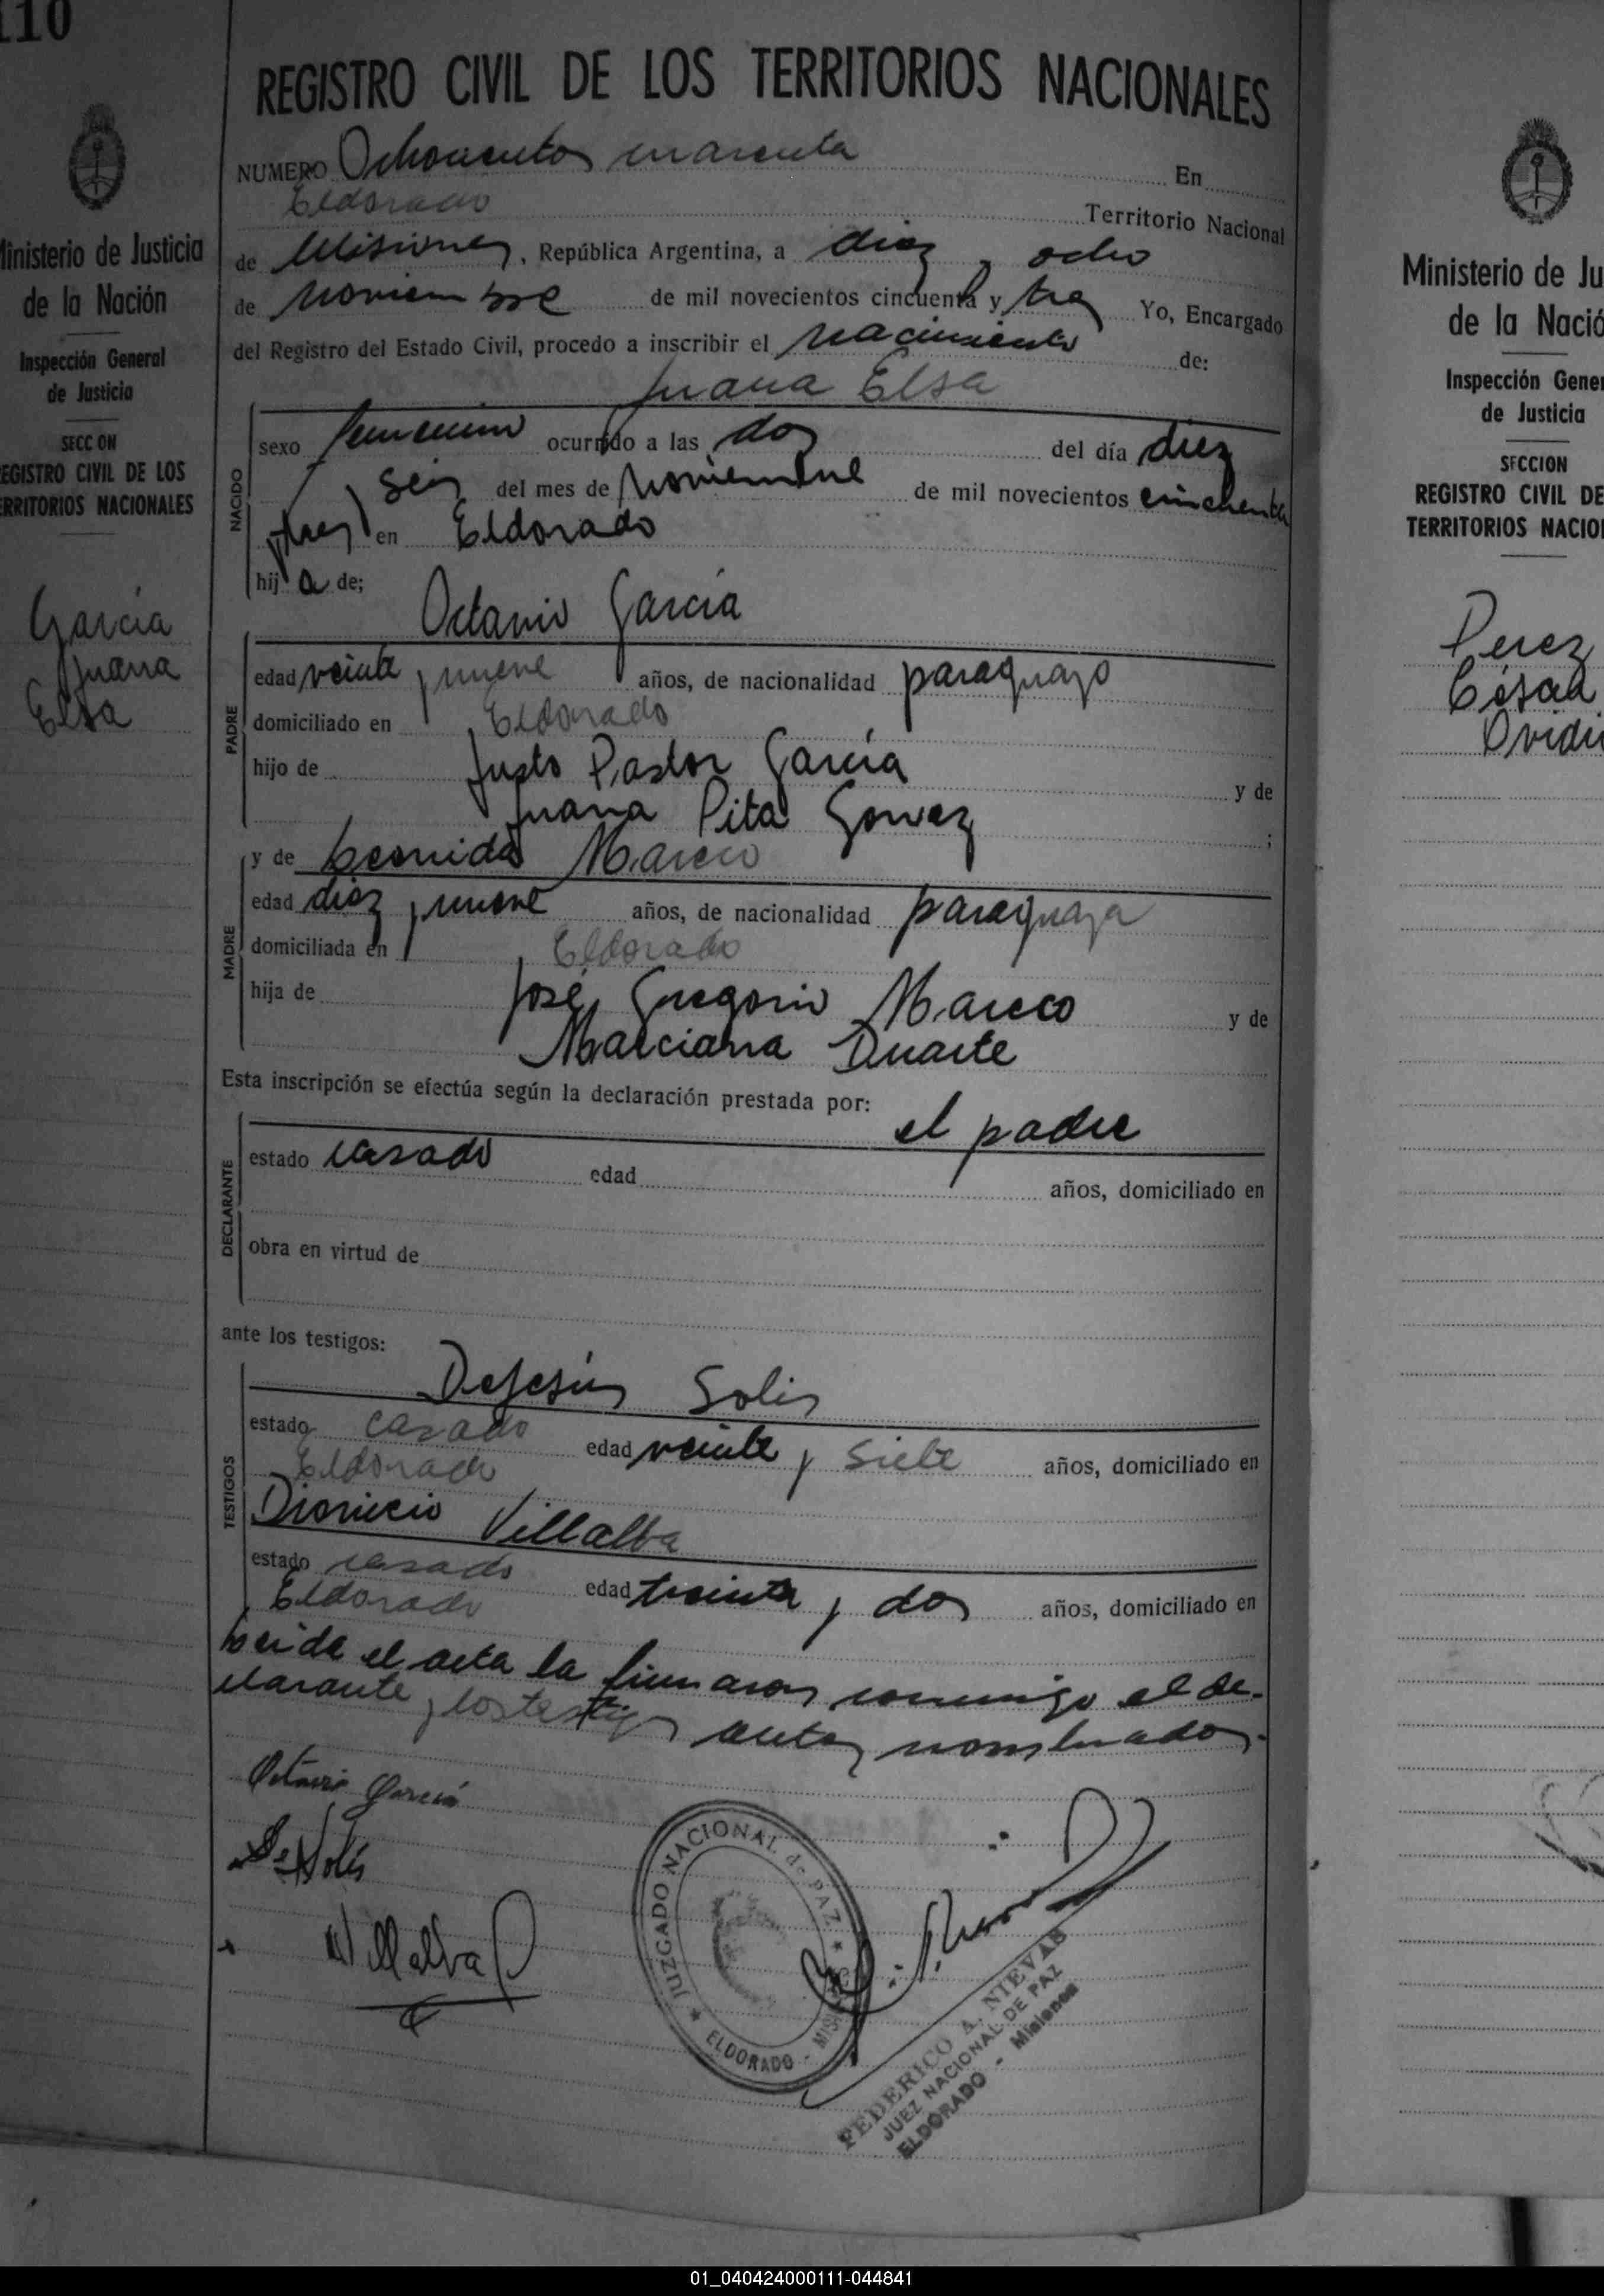 110
Ministerio de Justicia
de la Nación
Inspección General
de Justicia
SECCION
REGISTRO CIVIL DE LOS
TERRITORIOS NACIONALES
García
Juana
Elsa
REGISTRO CIVIL DE LOS TERRITORIOS NACIONALES
NUMERO Ochocientos cuarenta En
Eldorado Territorio Nacional
de Misiones, República Argentina, a diez y ocho
de Noviembre de mil novecientos cincuenta y tres Yo, Encargado
del Registro del Estado Civil, procedo a inscribir el nacimiento de:
Juana Elsa
NACIDO
sexo femenino ocurrido a las dos del día diez
y seis del mes de Noviembre de mil novecientos cincuenta
y tres en Eldorado
hij a de;
Octavio García
PADRE
edad veinte y nueve años, de nacionalidad paraguayo
domiciliado en Eldorado
hijo de Justo Pastor García y de
Juana Pita Gomez ;
MADRE
y de Leonida Mareco
edad diez y nueve años, de nacionalidad paraguaya
domiciliada en Eldorado
hija de José Gregorio Mareco y de
Marciana Duarte
Esta inscripción se efectúa según la declaración prestada por:
el padre
DECLARANTE
estado casado edad años, domiciliado en
obra en virtud de
ante los testigos:
TESTIGOS
Dejesús Solis
estado casado edad veinte y siete años, domiciliado en
Eldorado
Dionicio Villalba
estado casado edad treinta y dos años, domiciliado en
Eldorado
Leida el acta la firmaron conmigo el de-
clarante y los testigos antes nombrados.
Octavio García
D. Solís
Villalva
JUZGADO NACIONAL de PAZ
ELDORADO - MISIONES
FEDERICO A. NIEVAS
JUEZ NACIONAL DE PAZ
ELDORADO - Misiones
Ministerio de Ju
de la Nació
Inspección Gene
de Justicia
SECCION
REGISTRO CIVIL DE
TERRITORIOS NACIO
Perez
César
Ovidi
01_040424000111-044841